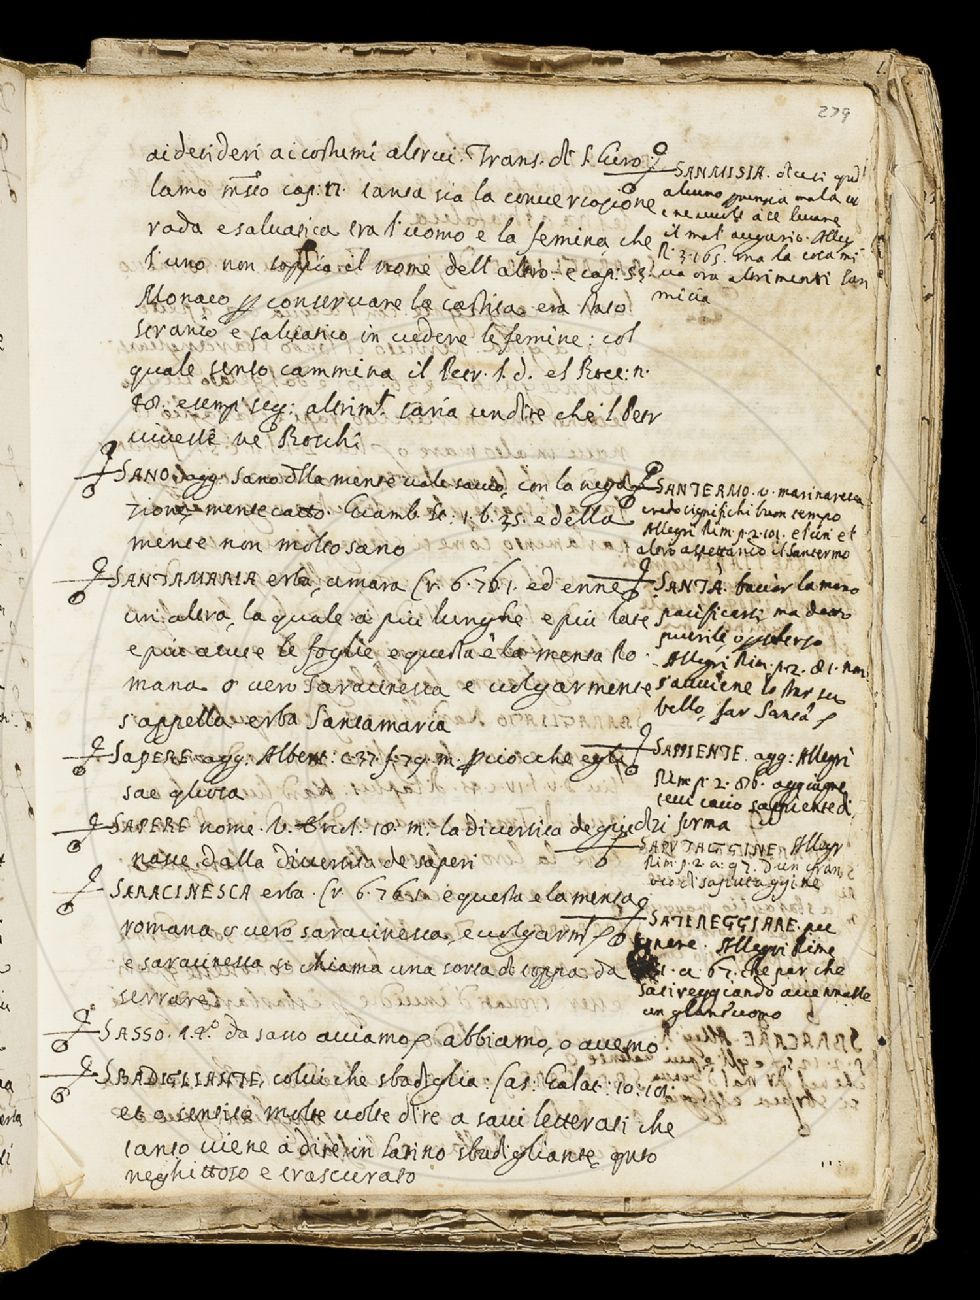 279
ai desideri ai costumi altrui. Trans. di S. Giro:
lamo cap: 17. tanta sia la conversazione
rada e salvatica tra l'uomo e la femina che
l'uno non sappia il nome dell'altro. e cap: 53:
Monaco conservare la castita era stato
stranio e salvatico in vedere le femine: col
quale senso cammina il Petr. S. d. el
48. esempi seg: altrimt. saria un dire che 'l Petr
vivesse ne' Boschi
SANO. agg. Sano della mente vale savio, con la nega
zione mentecatto. Giamb. St: 1. 6. 35. e della
mente non molto sano
SANTAMARIA erba, amara Cr. 6. 76 1. ed enne
un'altra, la quale à più lunghe e più late
e più acute le foglie e questa è la menta Ro
mana o vero Saracinesca e volgarmente
s'appella erba Santamaria
SAPERE agg: Albert: c 37 f: 79. m. cioche egli
SAPERE nome. V. 18. m. la diversità degiudizi
nasce dalla diversità de saperi
SARACINESCA erba. Cr 6. 76 1. e questa e la menta
romana o vero saracinesca, e volgarm
e saracinesca si chiama una sorta di toppa da
serrare
SASSO. da savo aviamo abbiamo, o avemo
SBADIGLIANTE, colui che sbadiglia: Cas: Galat: 10: 101.
et o sentito molte volte dire a savi letterati che
tanto viene à dire in latino sbadigliante quto
neghittoso e trascurato
SANMISIA. dicesi qdo
alcuno mala
e ne vuole
il mal' augurio. Alleg
Ri 3. 165. ma la cosa mi
va ora altrimenti San
misia
SANTERMO. v. marinaresca
credo significhi buon tempo
Allegri Rim. p. 2. 101. et un et
altro aspettando il Santermo
SANTÀ. baciar la mano
pacificarsi, ma detto
puerile, o scherzo
Allegri Rim. p. 2. 81. non
s'avviene lo star su
bello, far Santà
SAPIENTE. agg: Allegri
Rim p 2. 86.
cacio sapiente di
forma
SAPUTAGGINE Allegr
Rim: p. 2. a 97. d'un gran
di saputaggine
SATIREGGIARE. per
Allegri Rime
1. a 67. che par che
satireggiando accennasse
un glantuomo